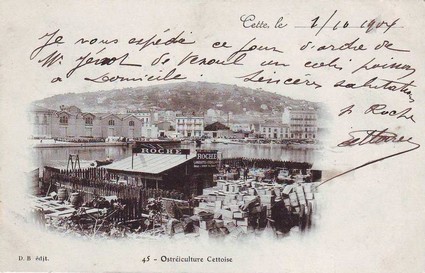 Cette, le 1/10 1904
Je vous expédie ce jour d'ordre de
Mr de Vesoul un colis
à Domicile. Sincères salutations
Roche
ROCHE
ROCHE
45 - Ostréiculture Cettoise
D. B édit.